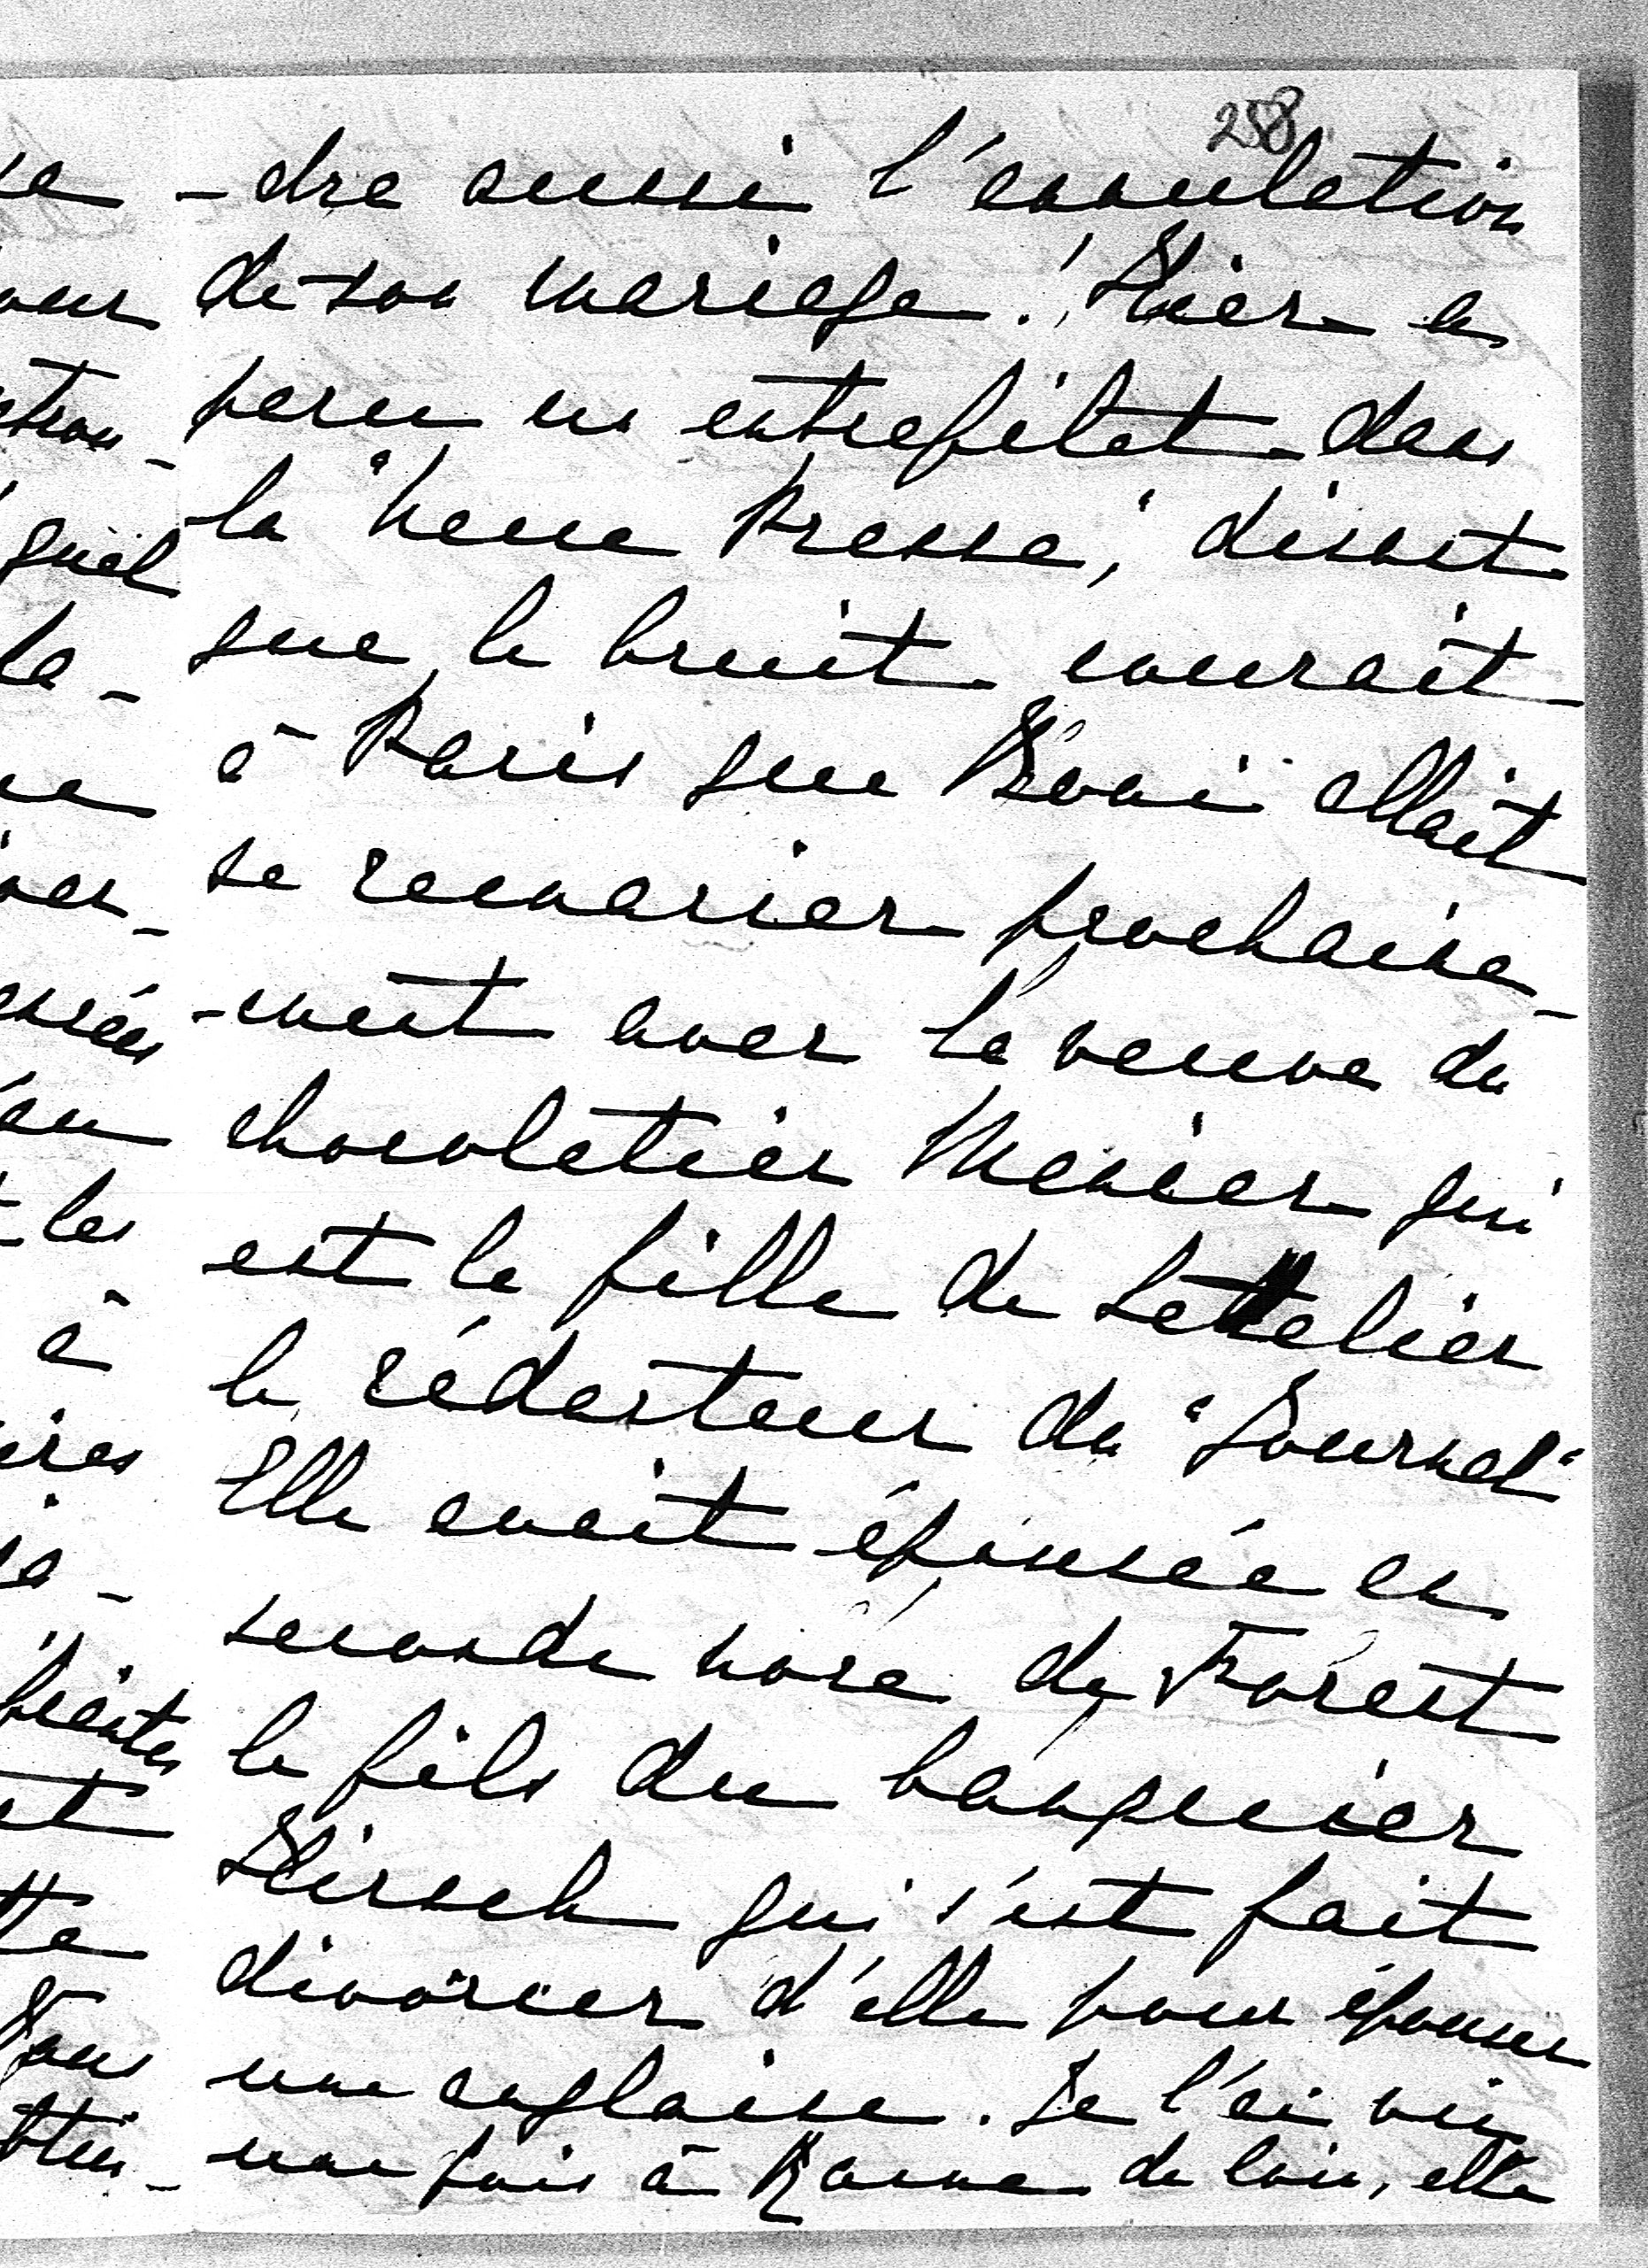 258
-dre aussi l'annulation
de son mariage. Hier a
paru un entrefilet dans
la "Neue Presse", disant
que le bruit courait
à Paris que Boni allait
se remarier prochaine-
-ment avec la veuve du
chocolatier Menier qui
est la fille de Letelier
le rédacteur du "Journal"
Elle avait épousée en
seconde noce de Forest
le fils du banquier
Hirsch qui s'est fait
divorcer d'elle pour épouser
une anglaise. Je l'ai vue
une fois à de loin, elle